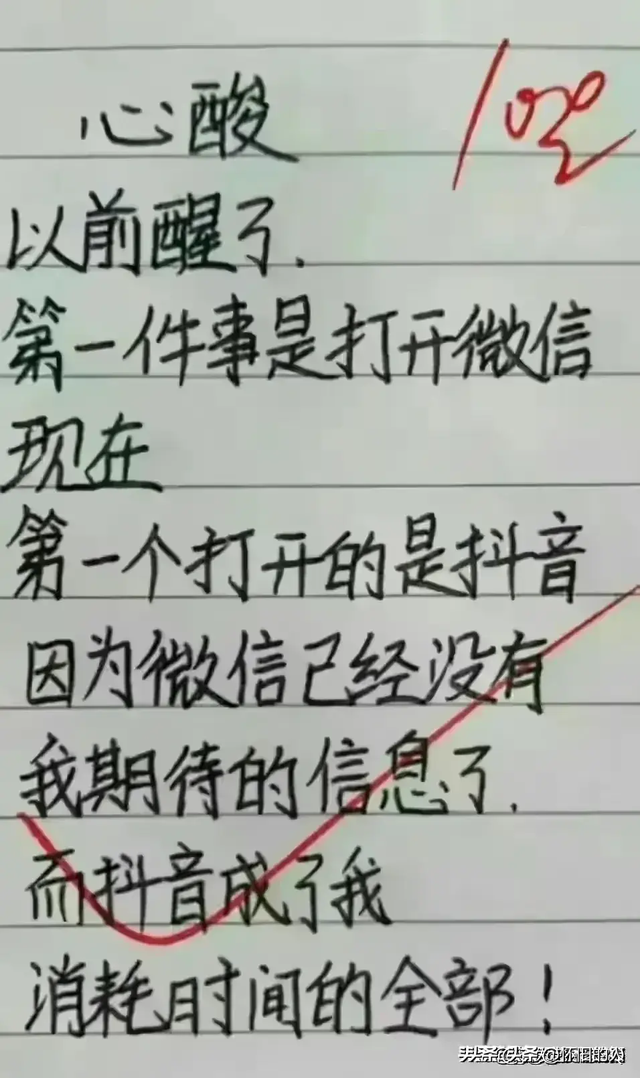 心酸
100
以前醒了.
第一件事是打开微信
现在
第一个打开的是抖音
因为微信已经没有
我期待的信息了.
而抖音成了我
消耗时间的全部！